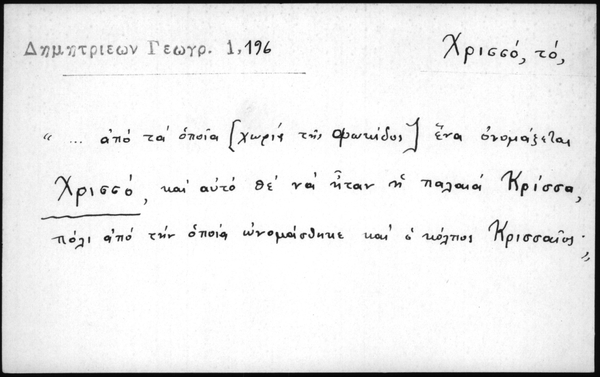 Δημητριεων Γεωγρ. 1,196
Χρισσό, τό,
“ ... ἀπό τά ὁποῖα [χωριά τῆς Φωκίδος] ἕνα ὀνομάζεται
Χρισσό, καί αὐτό θέ νά ἦταν ἡ παλαιά Κρίσσα,
πόλι ἀπό τήν ὁποία ὠνομάσθηκε καί ὁ κόλπος Κρισσαῖος·„